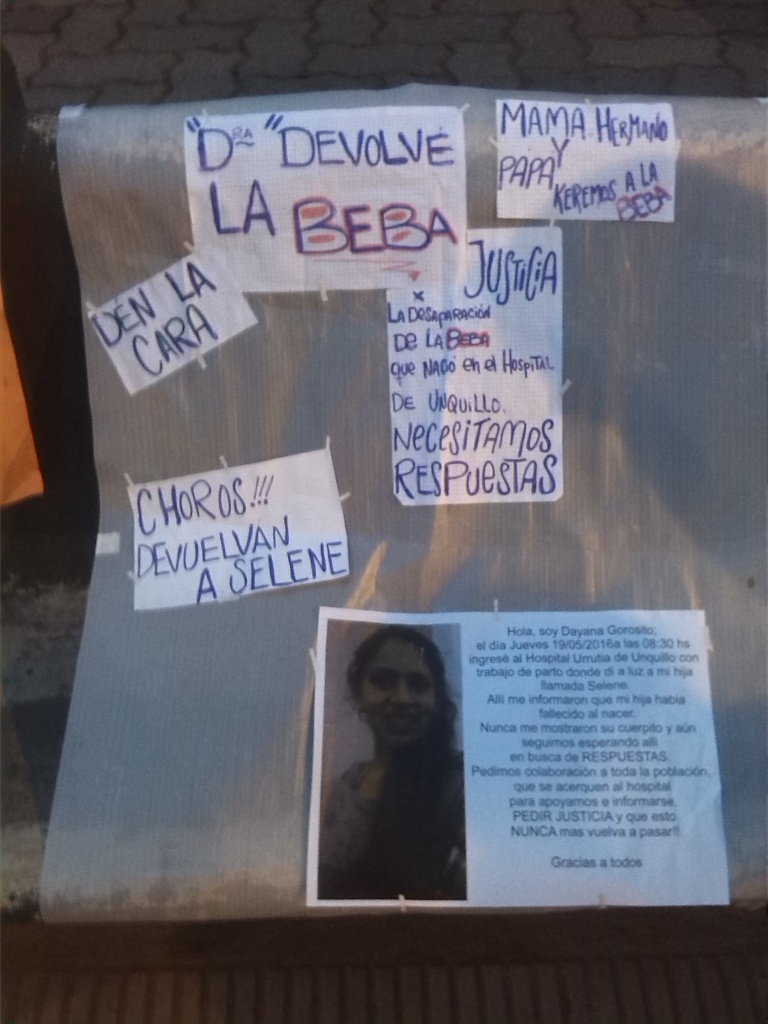 "Dra" DEVOLVÉ
LA BEBA
MAMA HERMANO
Y
PAPA
KEREMOS A LA
BEBA
DEN LA
CARA
JUSTICIA
x
LA DESAPARACIÓN
DE LA BEBA
que NACIÓ en el HOSPITAL
DE UNQUILLO.
NECESITAMOS
RESPUESTAS
CHOROS!!!
DEVUELVAN
A SELENE
Hola, soy Dayana Gorosito;
el día Jueves 19/05/2016a las 08:30 hs
ingresé al Hospital Urrutia de Unquillo con
trabajo de parto donde di a luz a mi hija
llamada Selene.
Allí me informaron que mi hija había
fallecido al nacer.
Nunca me mostraron su cuerpito y aún
seguimos esperando allí
en busca de RESPUESTAS.
Pedimos colaboración a toda la población,
que se acerquen al hospital
para apoyarnos e informarse,
PEDIR JUSTICIA y que esto
NUNCA mas vuelva a pasar!!
Gracias a todos